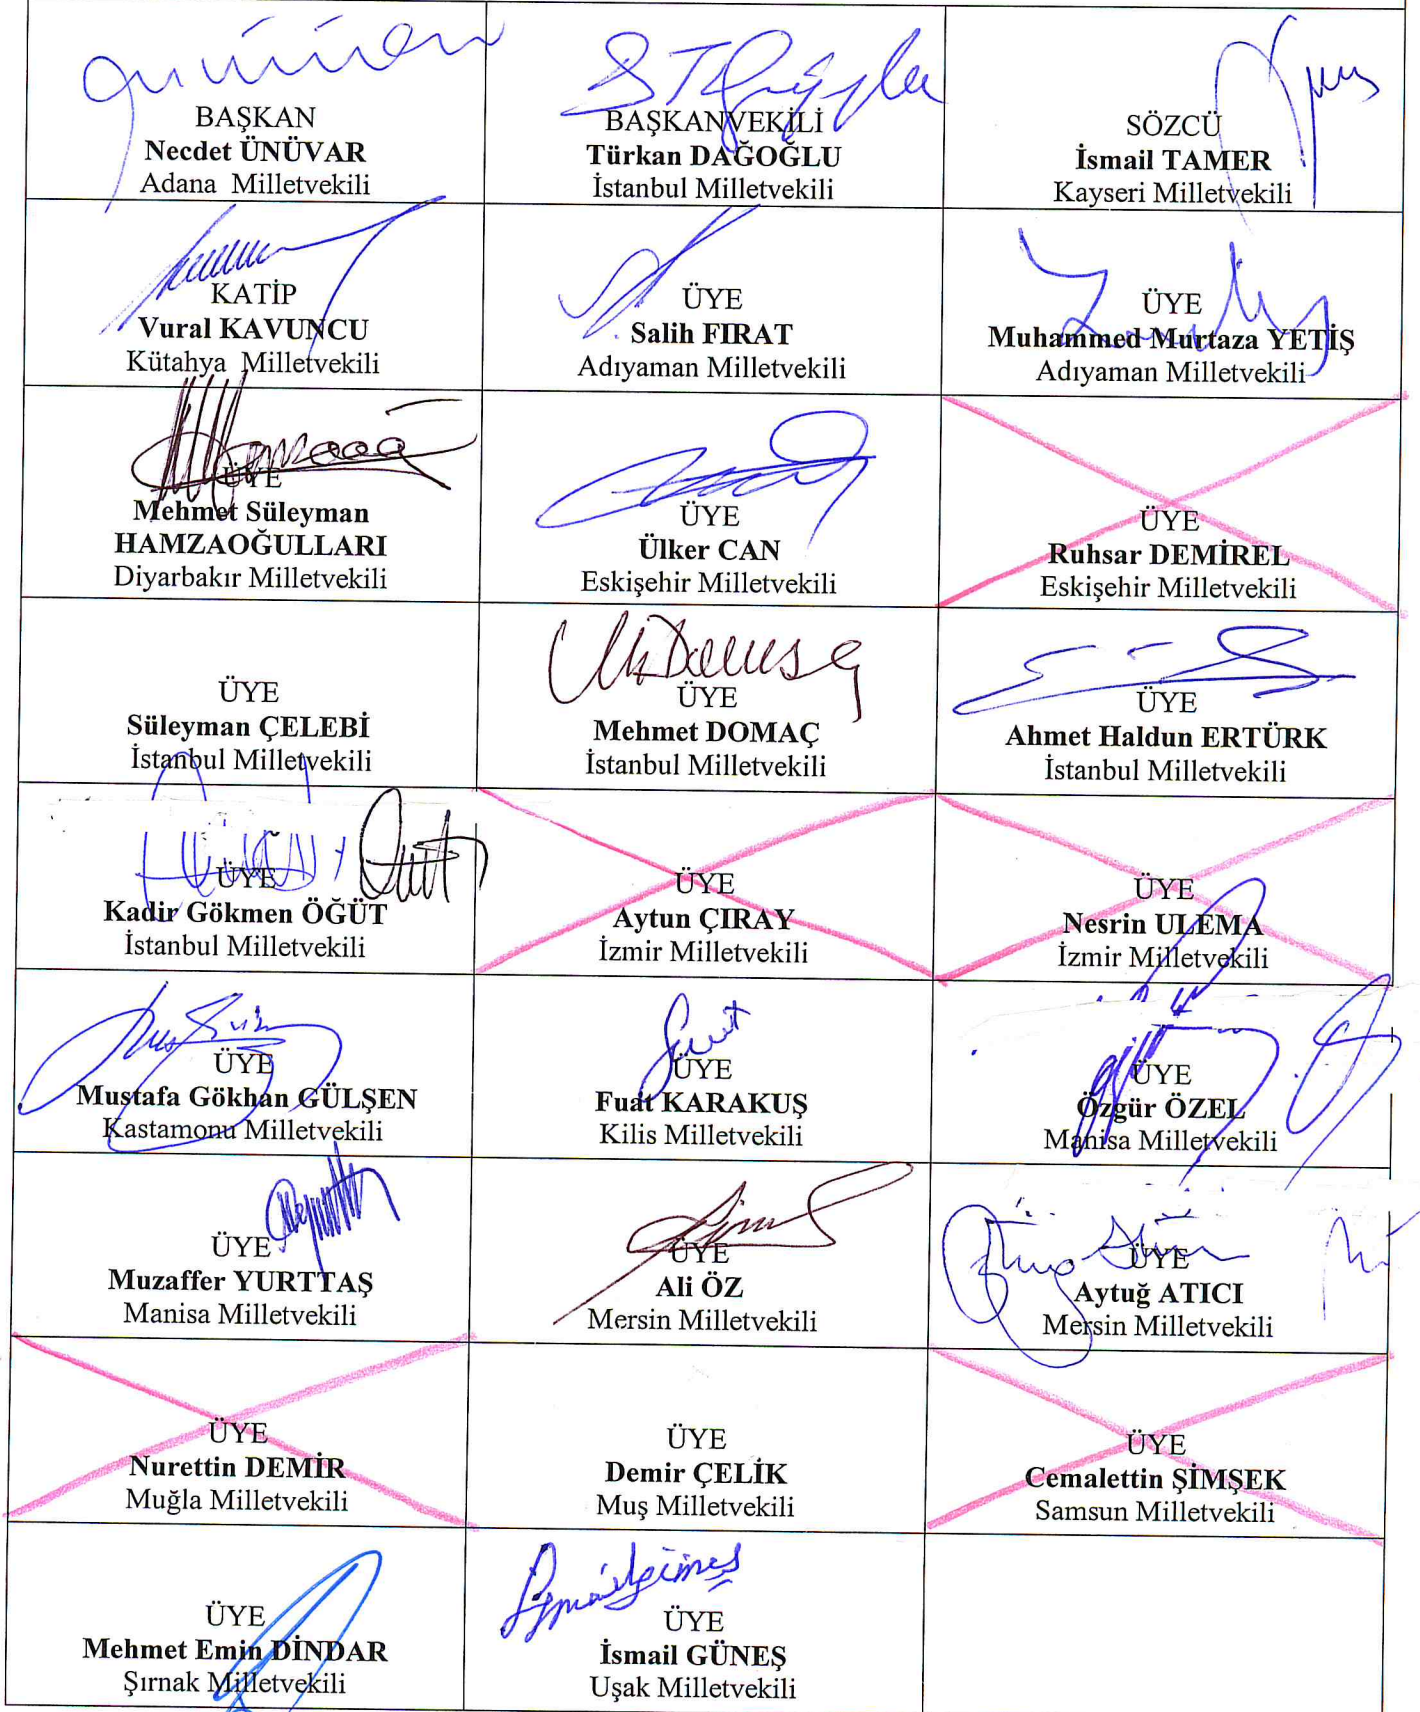 BAŞKAN
Necdet ÜNÜVAR
Adana Milletvekili
BAŞKANVEKİLİ
Türkan DAĞOĞLU
İstanbul Milletvekili
SÖZCÜ
İsmail TAMER
Kayseri Milletvekili
KATİP
Vural KAVUNCU
Kütahya Milletvekili
ÜYE
Salih FIRAT
Adıyaman Milletvekili
ÜYE
Muhammed Murtaza YETİŞ
Adıyaman Milletvekili
ÜYE
Mehmet Süleyman
HAMZAOĞULLARI
Diyarbakır Milletvekili
ÜYE
Ülker CAN
Eskişehir Milletvekili
ÜYE
Ruhsar DEMİREL
Eskişehir Milletvekili
ÜYE
Süleyman ÇELEBİ
İstanbul Milletvekili
ÜYE
Mehmet DOMAÇ
İstanbul Milletvekili
ÜYE
Ahmet Haldun ERTÜRK
İstanbul Milletvekili
ÜYE
Kadir Gökmen ÖĞÜT
İstanbul Milletvekili
ÜYE
Aytun ÇIRAY
İzmir Milletvekili
ÜYE
Nesrin ULEMA
İzmir Milletvekili
ÜYE
Mustafa Gökhan GÜLŞEN
Kastamonu Milletvekili
ÜYE
Fuat KARAKUŞ
Kilis Milletvekili
ÜYE
Özgür ÖZEL
Manisa Milletvekili
ÜYE
Muzaffer YURTTAŞ
Manisa Milletvekili
ÜYE
Ali ÖZ
Mersin Milletvekili
ÜYE
Aytuğ ATICI
Mersin Milletvekili
ÜYE
Nurettin DEMİR
Muğla Milletvekili
ÜYE
Demir ÇELİK
Muş Milletvekili
ÜYE
Cemalettin ŞİMŞEK
Samsun Milletvekili
ÜYE
Mehmet Emin DİNDAR
Şırnak Milletvekili
ÜYE
İsmail GÜNEŞ
Uşak Milletvekili